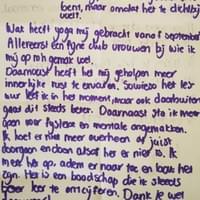 bent, maar omdat het te dichtbij
voelt.
Wat heeft yoga mij gebracht vanaf september
Allereerst een fijne club vrouwen bij wie ik
mij op mn gemak voel.
Daarnaast heeft het mij geholpen meer
innerlijke rust te ervaren. Sowieso het les-
uur zet ik in het moment, maar ook daarbuiten
gaat dit steeds beter. Daarnaast sta ik meer
open voor fysieke en mentale ongemakken.
Ik hoef er niet meer overheen of juist
doorgaan en doen alsof het er niet is. Ik
merk het op, adem er naar toe en laat het
zijn. Het is een boodschap die ik steeds
beter leer te ontcijferen. Dank je wel